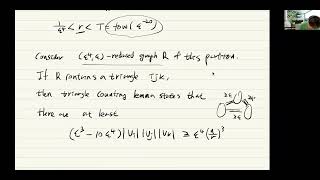 1/ε⁴ < r < T = tow(ε⁻²⁰)
Consider (ε⁴, ε)-reduced graph R of this partition.
If R contains a triangle ijk,
then triangle counting lemma states that
there are at least
≥ε
(ε³ - 10ε⁴)|Vᵢ||Vⱼ||Vₖ| ≥ ε⁴(n/r)³